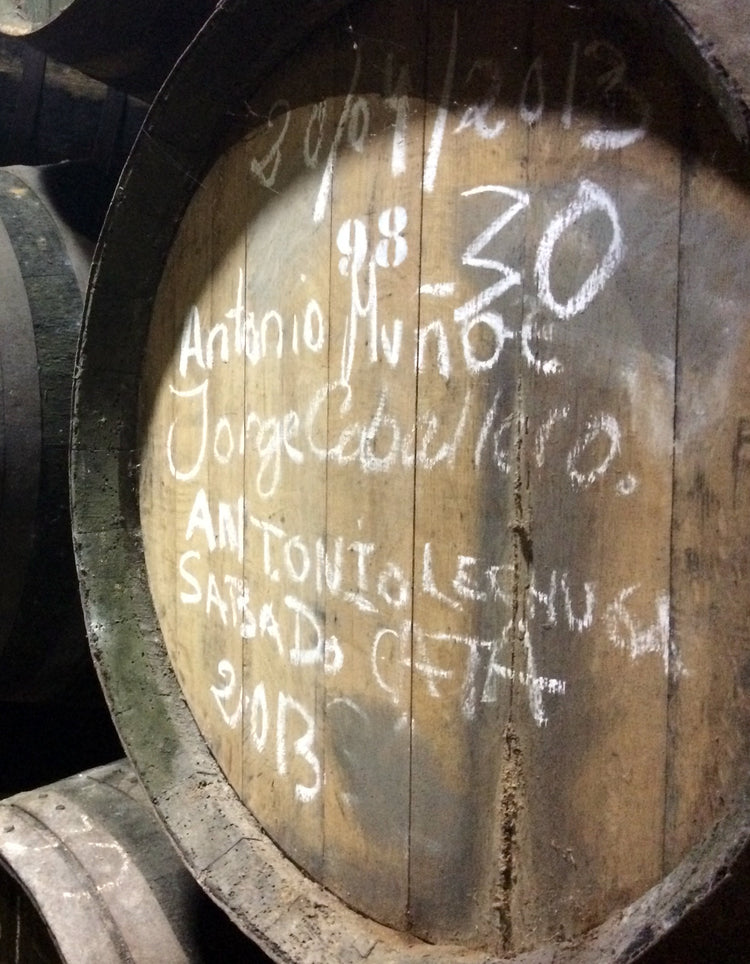 20/04/2013
98 - 30
Antonio Muñoz
Jorge Caballero.
ANTONIO LECHUGA
SABADO
2013